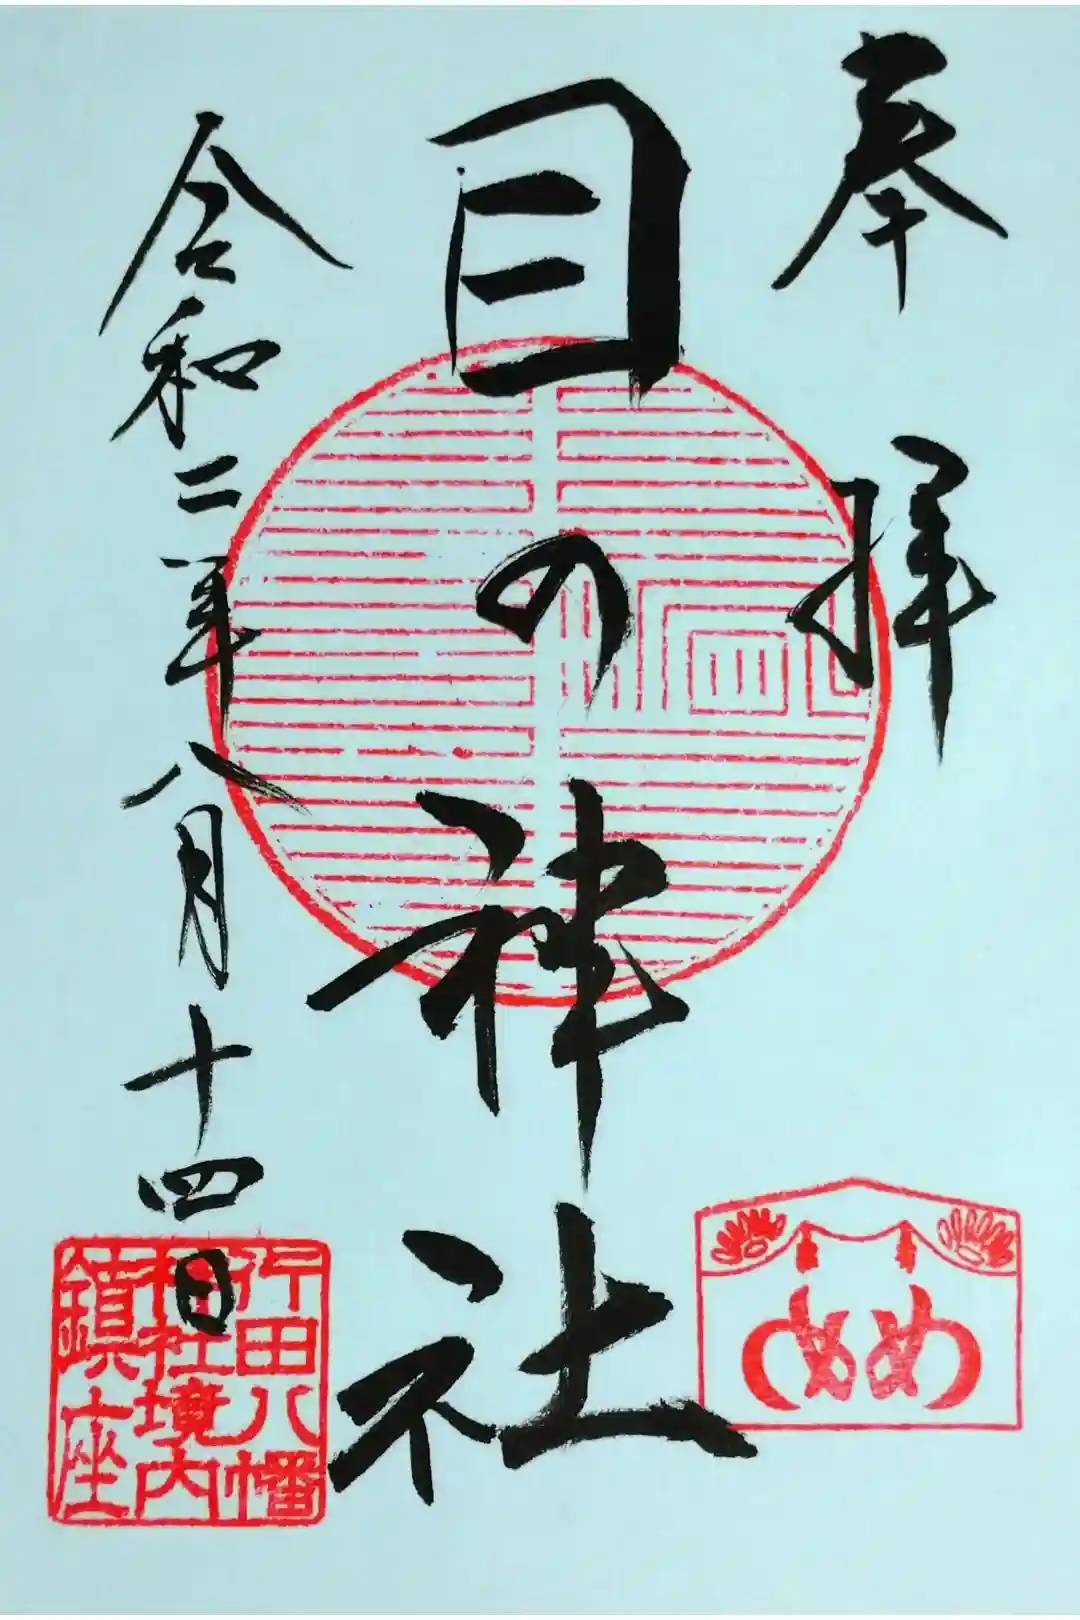 奉拝
目の神社
令和二年八月十四日
めめ
行田八幡
神社境内
鎮座